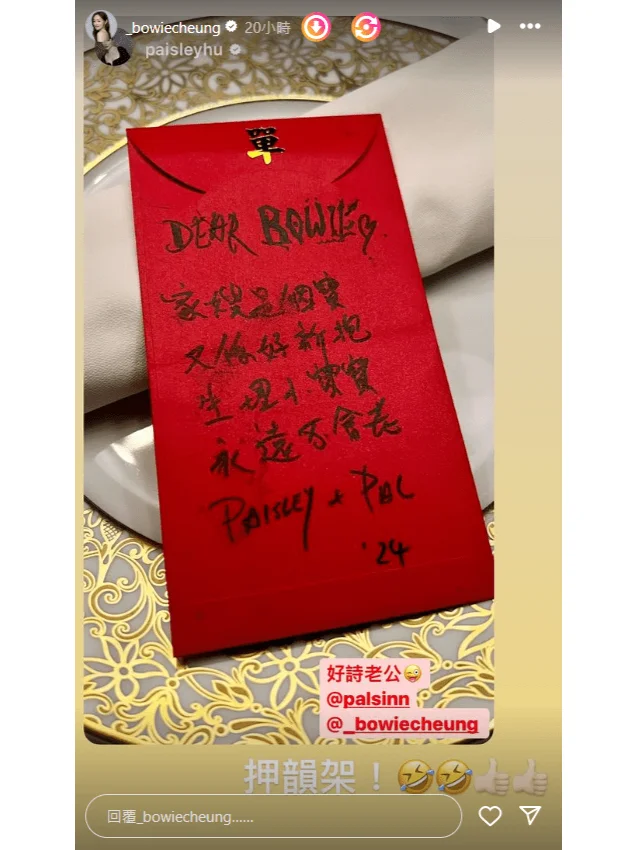 _bowiecheung 20小時
paisleyhu
單
DEAR BOWIE,
家嫂是個寶
又係好新抱
生埋小寶寶
永遠不會老
PAISLEY + PAL
'24
好詩老公😜
@palsinn
@_bowiecheung
押韻架！🤣🤣👍🏻👍🏻
回覆_bowiecheung......